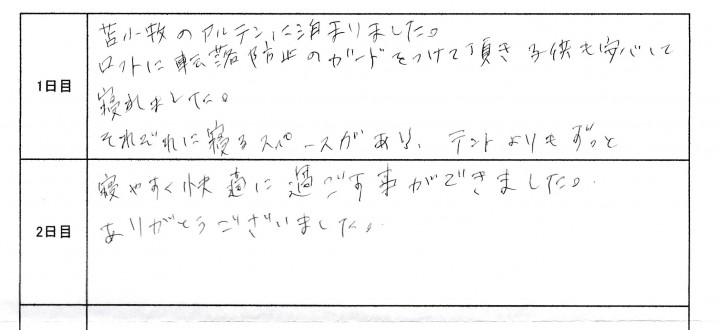 苫小牧のアルテンに泊まりました。
ロフトに転落防止のガードをつけて頂き子供も安心して
1日目
寝れました。
それぞれに寝るスペースがあり、テントよりもずっと
寝やすく快適に過ごす事ができました。
2日目
ありがとうございました。